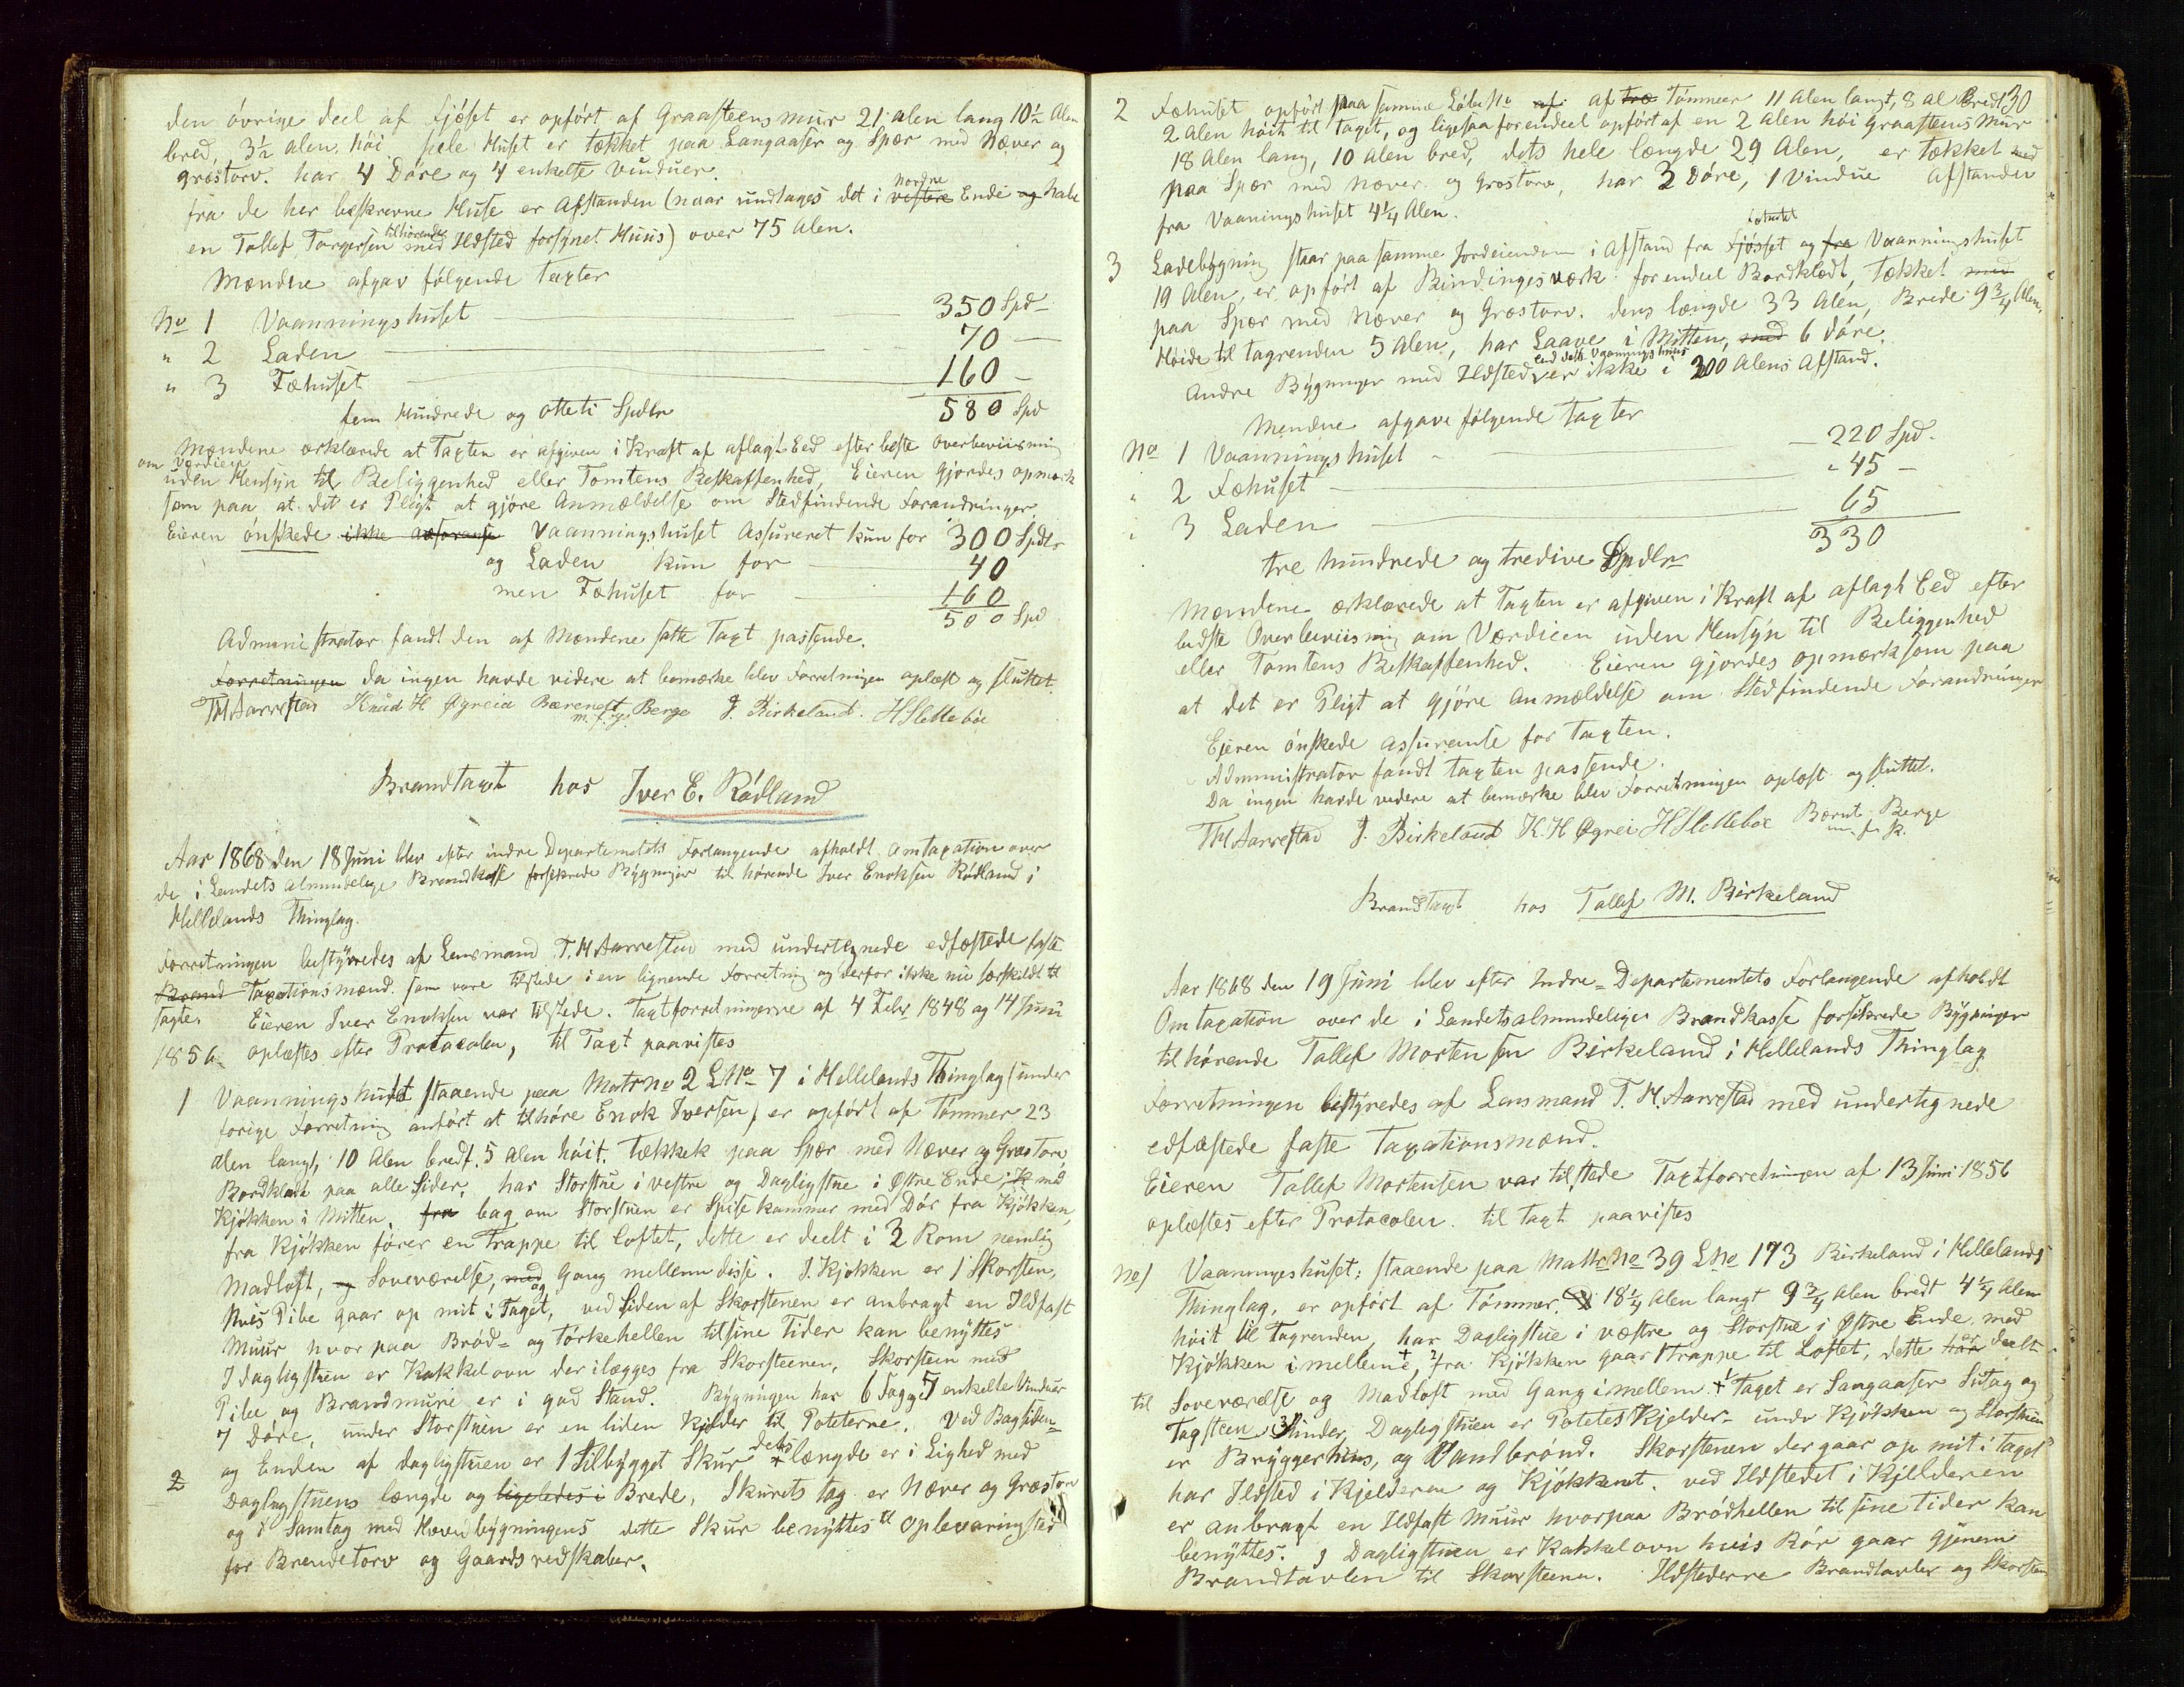 den övrige deel af Fjöset er opfört af Graasteensmur 21 alen lang 10½ Alen
bred, 3½ alen höi hele Huset er tækket paa Langaaser og Spær med Næver og
græstorv. har 4 Döre og 4 enkelte Vinduer.
fra de her beskrevne Huse er Afstanden (naar undtages det i vestre nordre Ende og
en Tollef Torgersen tilhörende med Ildsted forsynet Huus) over 75 Alen.
Mændene afgav fölgende Taxter
No 1 Vaanningshuset 350 Spd
" 2 Laden 70 —
" 3 Fæhuset 160 —
fem Hundrede og otteti Spdlr 580 Spd
Mændene erklærede at Taxten er afgiven i Kraft af aflagt Eed efter beste Overbeviisning
om Værdien
uden Hensyn til Beliggenhed eller Tomtens Beskaffenhed, Eieren gjordes opmærk
som paa at det er Pligt at gjöre Anmældelse om Stedfindende Forandringer
Eieren önskede ikke Vaanningshuset Assureret kun for 300 Spdlr
og Laden kun for 40
men Fæhuset for 160
500 Spd
Administrator fandt den af Mændene satte Taxt passende.
Forretningen Da ingen havde videre at bemærke blev Forretningen oplæst og sluttet.
TH Aarrestad Knud H Øgreid Bærent Berge J. Birkeland. H Slettebøe
m. f. p.
Brandtaxt hos Iver E. Rödland
Aar 1868 den 18 Juni blev efter indre Departemetets Forlangende afholdt Omtaxation over
de i Landets almindelige Brandkasse forsikrede Bygninger til hörende Iver Enoksen Rödland i
Hellelands Thinglag.
Forretningen bestyredes af Lensmand T. H. Aarrestad med undertegnede edfæstede faste
Brand Taxationsmænd som vare tilstede i en lignende Forretning og derfor ikke nu særskildt til
sagte. Eieren Iver Enoksen var tilstede. Taxtforretningerne af 4 Febr 1848 og 14 Juni
1856 oplæstes efter Protocolen, til Taxt paavistes
1 Vaanningshuset staaende paa Matr no 2 L No 7 i Hellelands Thinglag (under
forige Forretning anfört at tilhöre Enok Iversen) er opfört af Tömmer 23
Alen langt, 10 Alen bredt. 5 Alen höit. Tækket paa Spær med Næver og Græstorv,
Bordklædt paa alle Sider, har Storstue i vestre og Dagligstue i Østre Ende, med
Kjökken i Mitten. fra bag om Storstuen er Spisekammer med Dör fra Kjökken,
fra Kjökken förer en Trappe til Loftet, dette er deelt i 3 Rom nemlig
Madloft, og Soveværelse, med og Gang mellem disse. I Kjökken er 1 Skorsten,
hvis Pibe gaar op mit i Taget, ved Siden af Skorstenen er anbragt en Ildfast
Muur hvor paa Bröd- og Törkehellen tilsine Tider kan benyttes
I dagligstuen er Kakkelovn der ilægges fra Skorsteenen, Skorsteen med
Pibe og Brandmure er i god Stand. Bygningen har 6 Fagget 7 enkelte Vinduer
7 Döre, under Storstuen er en liden Kjelder til Poteterne. Ved Bagsiden
og Enden af dagligstuen er 1 Tilbygget Skur dets længde er i Lighed med
2 Dagligstuens længde og ligeledes i Brede, Skurets tag er Næver og Græstorv
og i Samtag med Hovedbygningens dette Skur benyttes til Opbevaringsted
for Brendetorv og Gaardsredskaber.
30
2 Fæhuset opfört paa samme Löbe No af af træ Tömmer 11 Alen langt, 8 al Bredt
2 Alen höit til taget, og ligesaa forendeel opfört af en 2 Alen höi Graasteens Mur
18 Alen lang, 10 Alen bred, dets hele længde 29 Alen, er tækket med
paa Spær med Næver og Græstorv, har 3 Döre, 1 Vindue Afstanden
fra Vaaningshuset 4¼ Alen.
3 Ladebygning staar paa samme Jordeiendom i Afstand fra Fjösset og fra Vaanningshuset
19 Alen, er opfört af Bindingsværk forendeel Bordklædt, Tækket med
paa Spær med Næver og Græstorv. dens længde 33 Alen, Brede 9¾ Alen,
Höide til Tagrenden 5 Alen, har Laave i Mitten, med 6 Döre.
Andre Bygninger med Ildsted end dette Vaanningshuus er ikke i 200 Alens Afstand.
Mendene afgave fölgende Taxter
No 1 Vaanningshuset 220 Spd.
" 2 Fæhuset 45 —
" 3 Laden 65
330
tre hundrede og tredive Spdlr
Mændene erklærede at Taxten er afgiven i Kraft af aflagt Eed efter
bedste Overbeviisning om Værdien uden Hensyn til Beliggenhed
eller Tomtens Beskaffenhed. Eieren gjordes opmærksom paa
at det er Pligt at gjöre Anmældelse om Stedfindende Forandringer
Eieren önskede Assurente for Taxten.
Administrator fandt Taxten passende.
Da ingen havde videre at bemærke blev Forretningen oplæst og sluttet.
TH Aarrestad J. Birkeland K. H Øgrei H Slettebøe Bærnt Berge
m. f. p.
Brandtaxt hos Tollef M. Birkeland
Aar 1868 den 19 Juni blev efter Indre-Departementets Forlangende afholdt
Omtaxation over de i Landetsalmindelige Brandkasse forsikrede Bygninger
tilhörende Tollef Mortensen Birkeland i Hellelands Thinglag
Forretningen bestyredes af Lensmand T. H. Aarrestad med undertegnede
edfæstede faste Taxationsmænd.
Eieren Tollef Mortensen var tilstede Taxtforretningen af 13 Juni 1856
oplæstes efter Protocolen. til Taxt paavistes
No 1 Vaaningeshuset: staaende paa Mattr No 39 L No 173 Birkeland i Hellelands
Thinglag, er opfört af Tömmer. 18¼ Alen langt 9¾ Alen bredt 4¼ Alen
höit til Tagrenden, har Dagligstue i væstre og Storstue i Østre Ende, med
Kjökken imellem, fra Kjökken gaar 1 Trappe til Loftet, dette har er deelt
til Soveværelse og Madloft med Gang imellem Taget er Langaaser Sutag og
Tagsteen under Dagligstuen er Potetes Kjelder under Kjökken og Storstuen
er Bryggerhus, og Vandbrönd. Skorstenen der gaar op mit i Taget
har Ildsted i Kjelderen og Kjökkent. ved Ildstedet i Kjelderen
er anbragt en Ildfast Muur hvorpaa Brödhellen til sine Tider kan
benyttes. I Dagligstuen er Kakkelovn hvis Rör gaar gjenem
Brandtavlen til Skorsteenen. Ildstederne Brandtavler og Skorsten